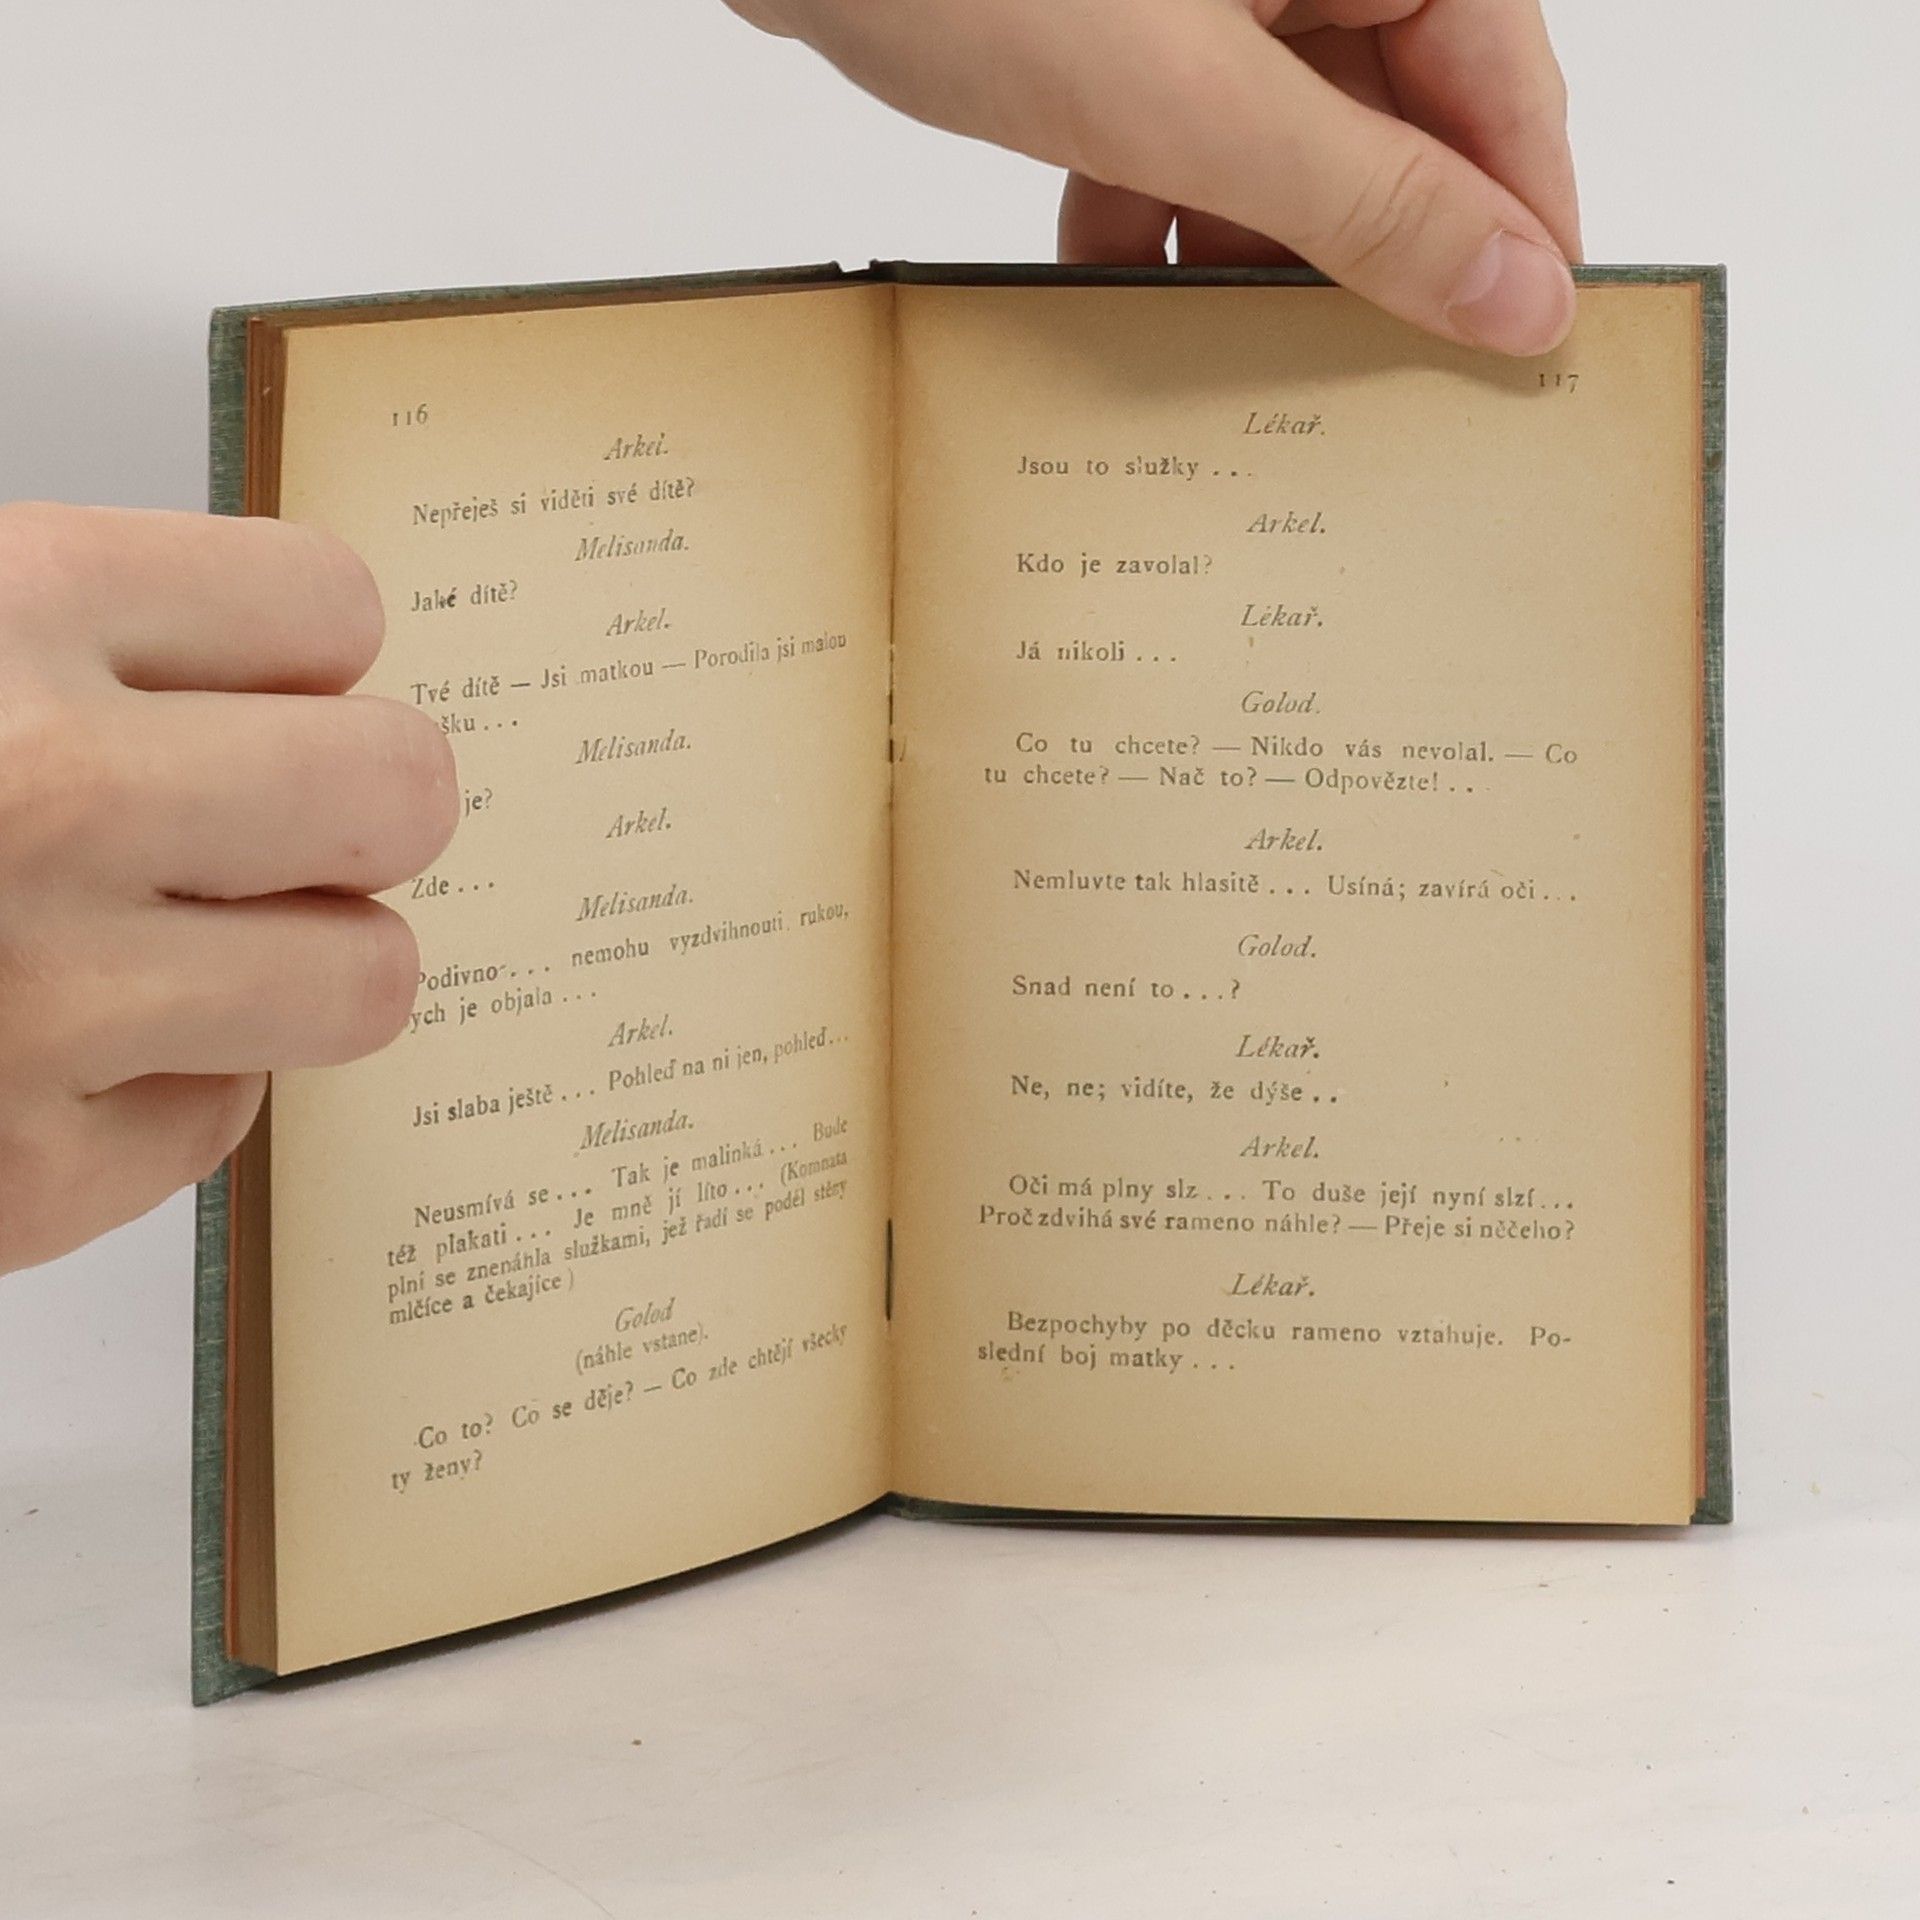 116
Arkel.
Nepřeješ si viděti své dítě?
Melisanda.
Jaké dítě?
Arkel.
Tvé dítě — Jsi matkou — Porodila jsi malou
šku . . .
Melisanda.
je?
Arkel.
Zde . . .
Melisanda.
Podivno . . . nemohu vyzdvihnouti rukou,
ych je objala . . .
Arkel.
Jsi slaba ještě . . . Pohleď na ni jen, pohleď...
Melisanda.
Neusmívá se . . . Tak je malinká . . . Bude
též plakati . . . Je mně jí líto . . . (Komnata
plní se znenáhla služkami, jež řadí se podél stěny
mlčíce a čekajíce)
Golod
(náhle vstane).
Co to? Co se děje? — Co zde chtějí všecky
ty ženy?
117
Lékař.
Jsou to služky . . .
Arkel.
Kdo je zavolal?
Lékař.
Já nikoli . . .
Golod.
Co tu chcete? — Nikdo vás nevolal. — Co
tu chcete? — Nač to? — Odpovězte! . .
Arkel.
Nemluvte tak hlasitě . . . Usíná; zavírá oči . . .
Golod.
Snad není to . . . ?
Lékař.
Ne, ne; vidíte, že dýše . .
Arkel.
Oči má plny slz . . . To duše její nyní slzí . . .
Proč zdvihá své rameno náhle? — Přeje si něčeho?
Lékař.
Bezpochyby po děcku rameno vztahuje. Po-
slední boj matky . . .